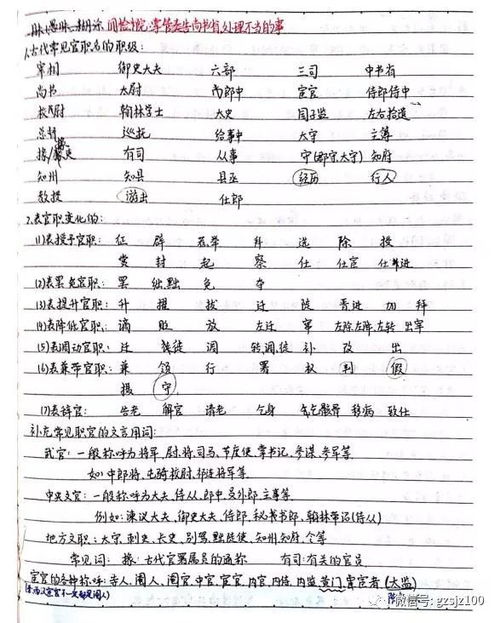 间检院:掌管委告尚书省处理不当的事
1.古代常见官职名的职级:
宰相 御史大夫 六部 三司 中书省
尚书 太尉 郎中 宦官 侍郎侍中
长尉 翰林学士 太史 国子监 左右拾遗
总制 巡抚 给事中 太守 主簿
掾史 有司 从事 守(郡守太守) 知府
知州 知县 县丞 经历 行人
教授 游击 仕郎
2.表官职变化的:
(1)表授予官职: 征 辟 荐举 拜 选 除 授
赏 封 起 察 仕 仕宦 仕进
(2)表罢免官职: 罢 绌,黜 免 夺
(3)表提升官职: 升 擢 拔 迁 陟 晋进 加 拜
(4)表降低官职: 谪 贬 放 左迁 窜 左除左降,左转 出宰
(5)表调动官职: 迁 转徙 调 转,调,徙 补 改 出
(6)表兼带官职: 兼 领 行 署 权 判 假
摄 守
(7)表辞官: 告老 解官 请老 乞身 乞骸骨 移病 致仕
补充常见职官的文言用词:
武官:一般称呼为将军,尉,将,司马,节度使,掌书记,参谋,参军等
如:中郎将,屯骑校尉,祁连将军等
中央文官:一般称呼为大夫,侍从,郎中,员外郎,主事等
例如:谏议大夫,御史大夫,侍郎,秘书郎,翰林学(侍从)
地方文职:太守,刺史,长史,别驾,黜陟使,知州,知府,令等
常见词: 掾:古代官署属员的通称 有司:有关的官员
宦官的各种称呼:寺人,阉人,阉官,中官,宦官,内官,内侍,内监,黄门,宦者(太监)
宦官不一定都是阉人)
微信号: gzsjz100